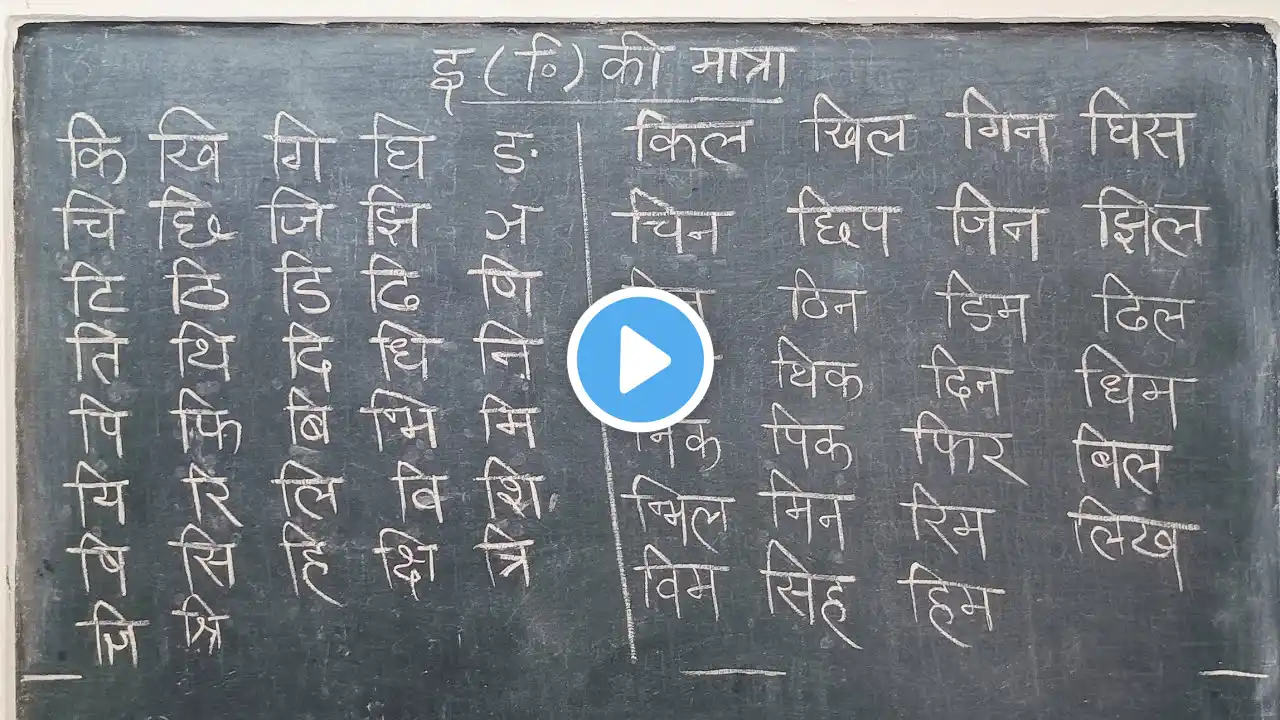 इ (ि) की मात्रा
कि खि गि घि ङ
चि छि जि झि ञ
टि ठि डि ढि णि
ति थि दि धि नि
पि फि बि भि मि
यि रि लि वि शि
षि सि हि क्षि त्रि
ज्ञि श्रि
किल खिल गिन घिस
चिन छिप जिन झिल
ठिन डिम ढिल
थिक दिन धिम
निक पिक फिर बिल
भिल मिन रिम लिख
विम सिह हिम